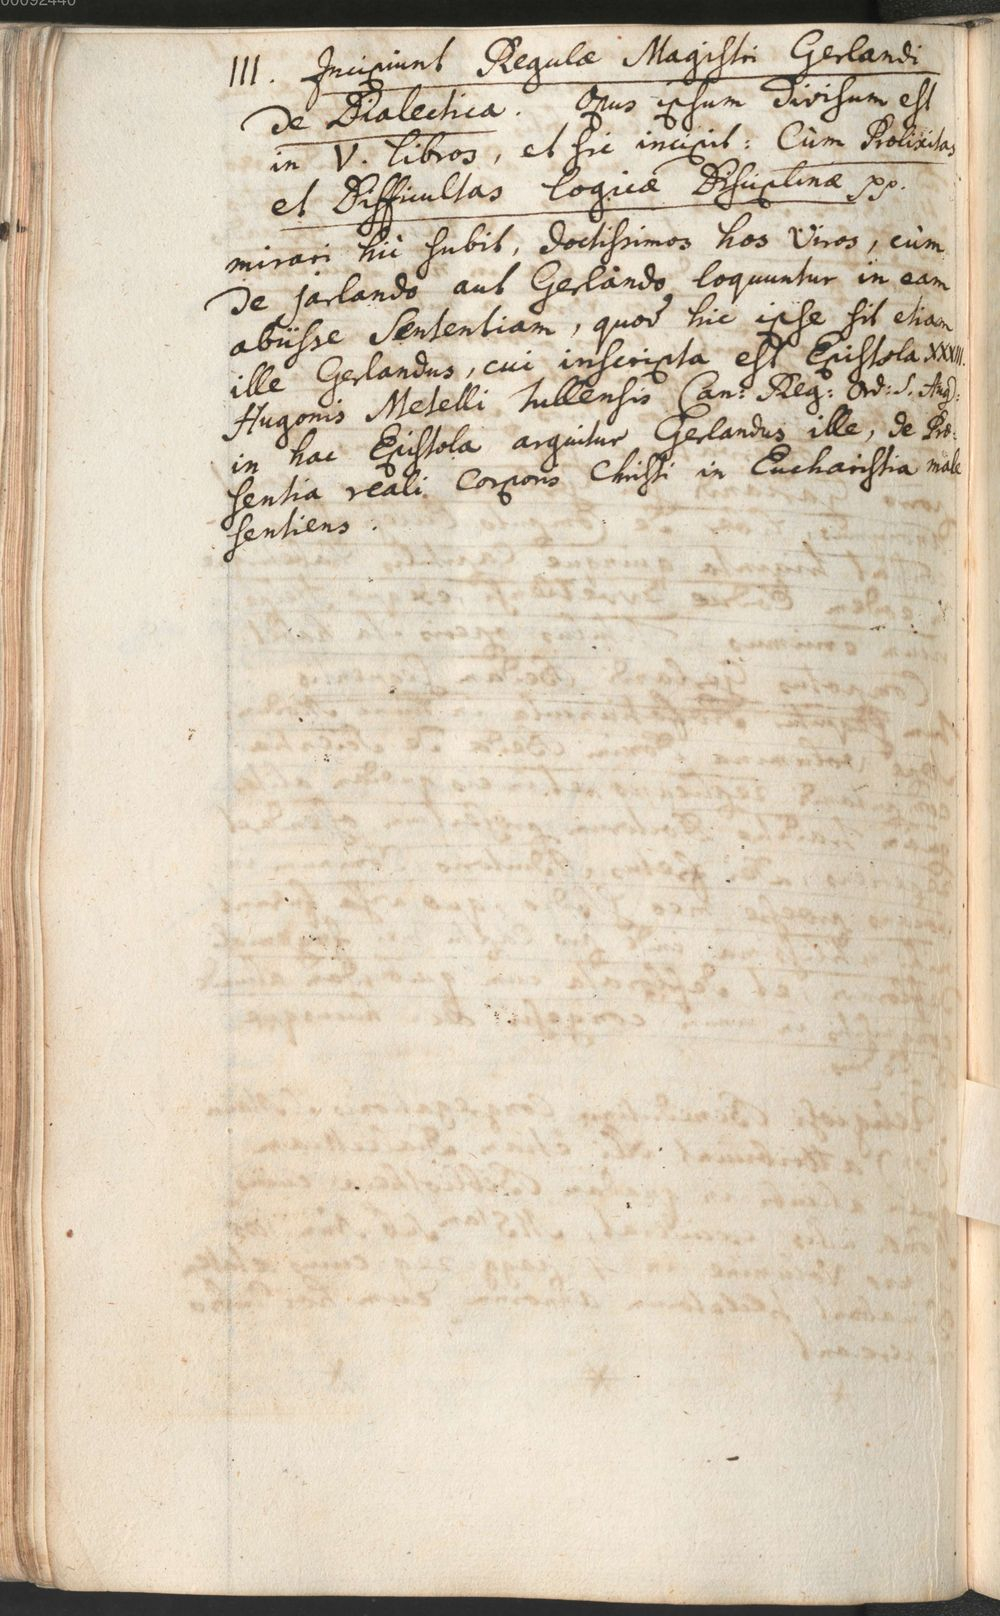 00092440
III. Incipiunt Regulæ Magistri Gerlandi
de Dialectica. Opus ipsum divisum est
in V. libros, et sic incipit: Cùm Prolixitas
et Difficultas logicæ Disciplinæ pp.
mirari hìc subit, doctissimos hos Viros, cùm
de Jarlando aut Gerlando loquuntur in eam
abiisse Sententiam, quod hic ipse sit etiam
ille Gerlandus, cui inscripta est Epistola XXXIII.
Hugonis Metelli Tullensis Can: Reg: Ord: S. Aug:
in hac Epistola arguitur Gerlandus ille, de Præ-
sentia reali Corporis Christi in Eucharistia malè
sentiens.